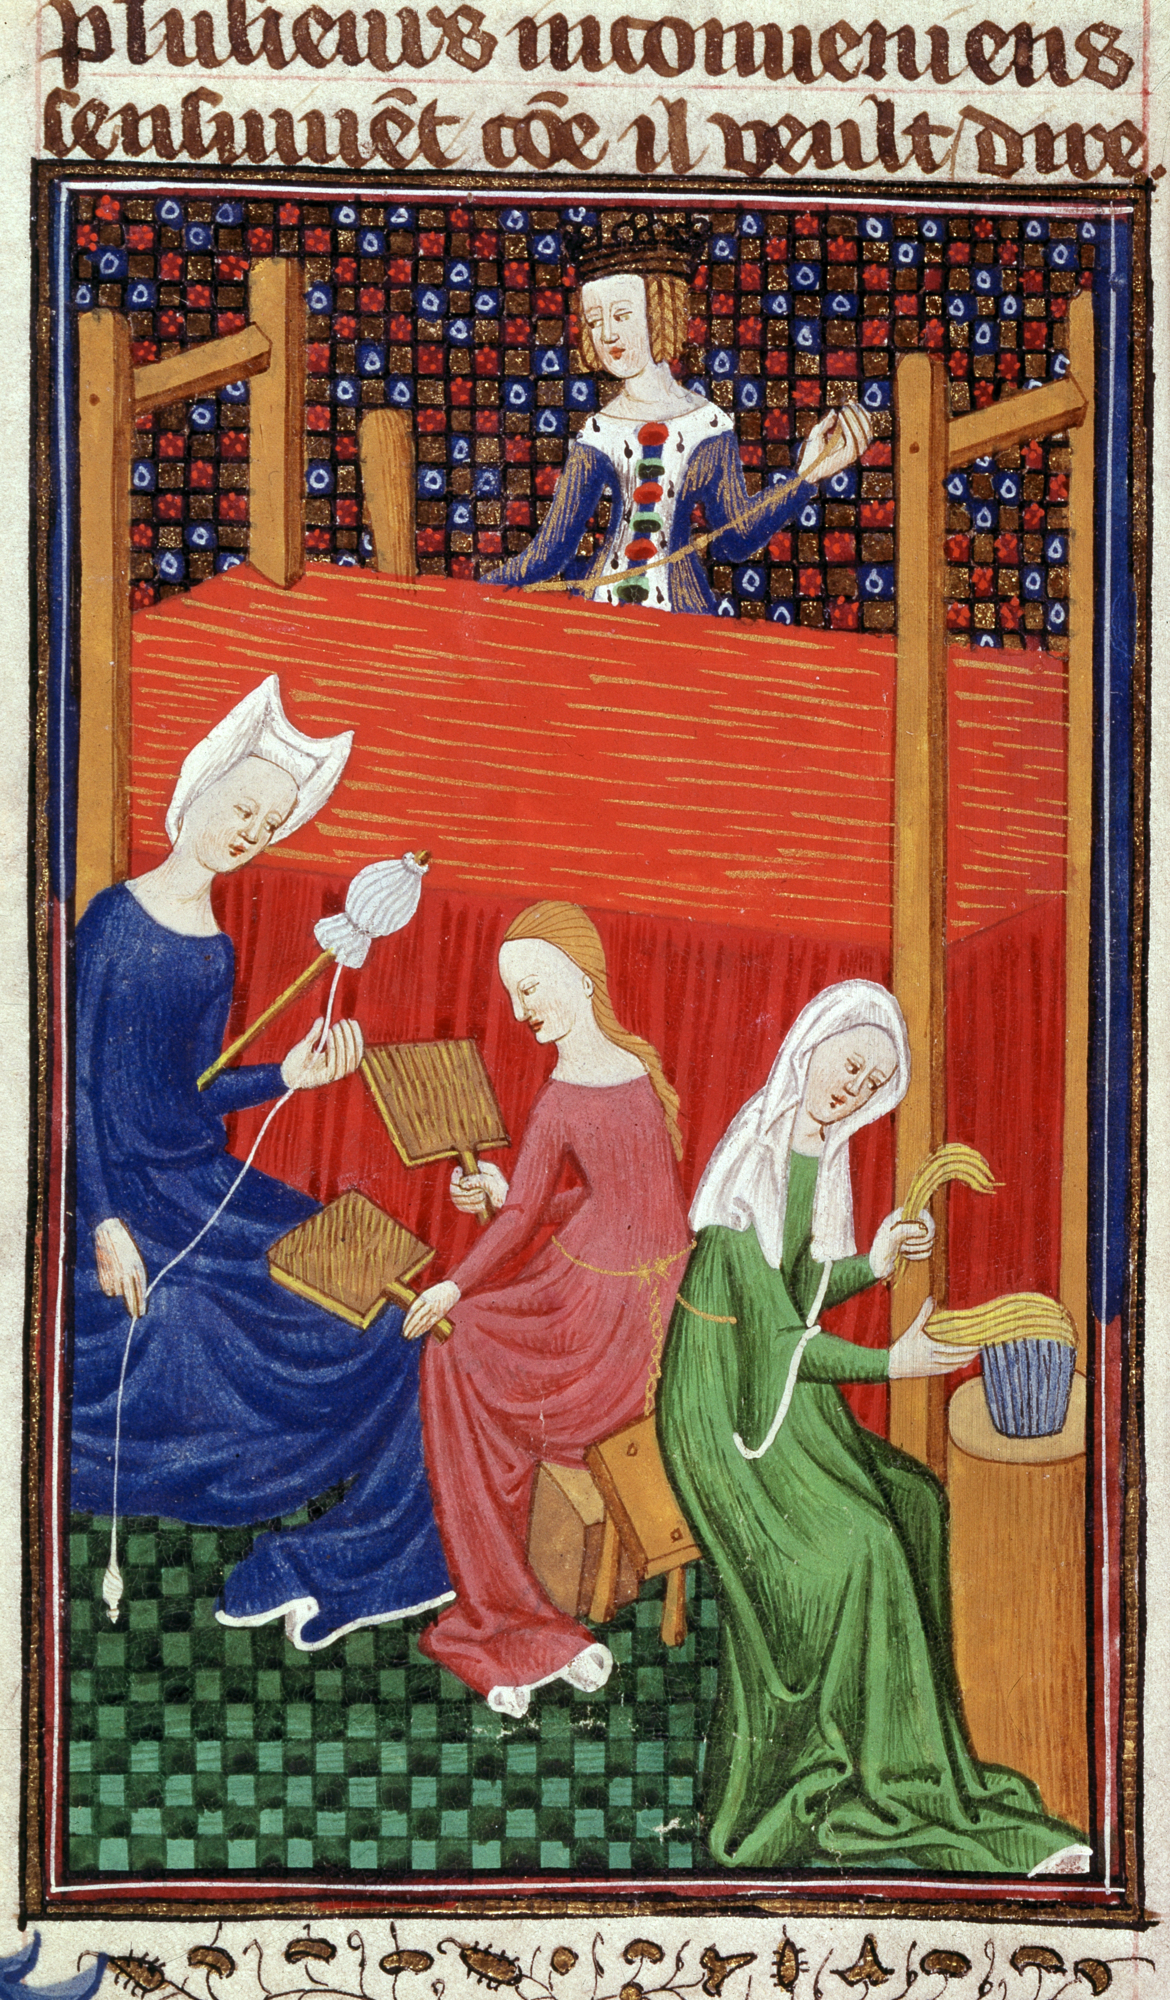 plusieurs inconueniens
sensuiuēt cōe il veult dire.